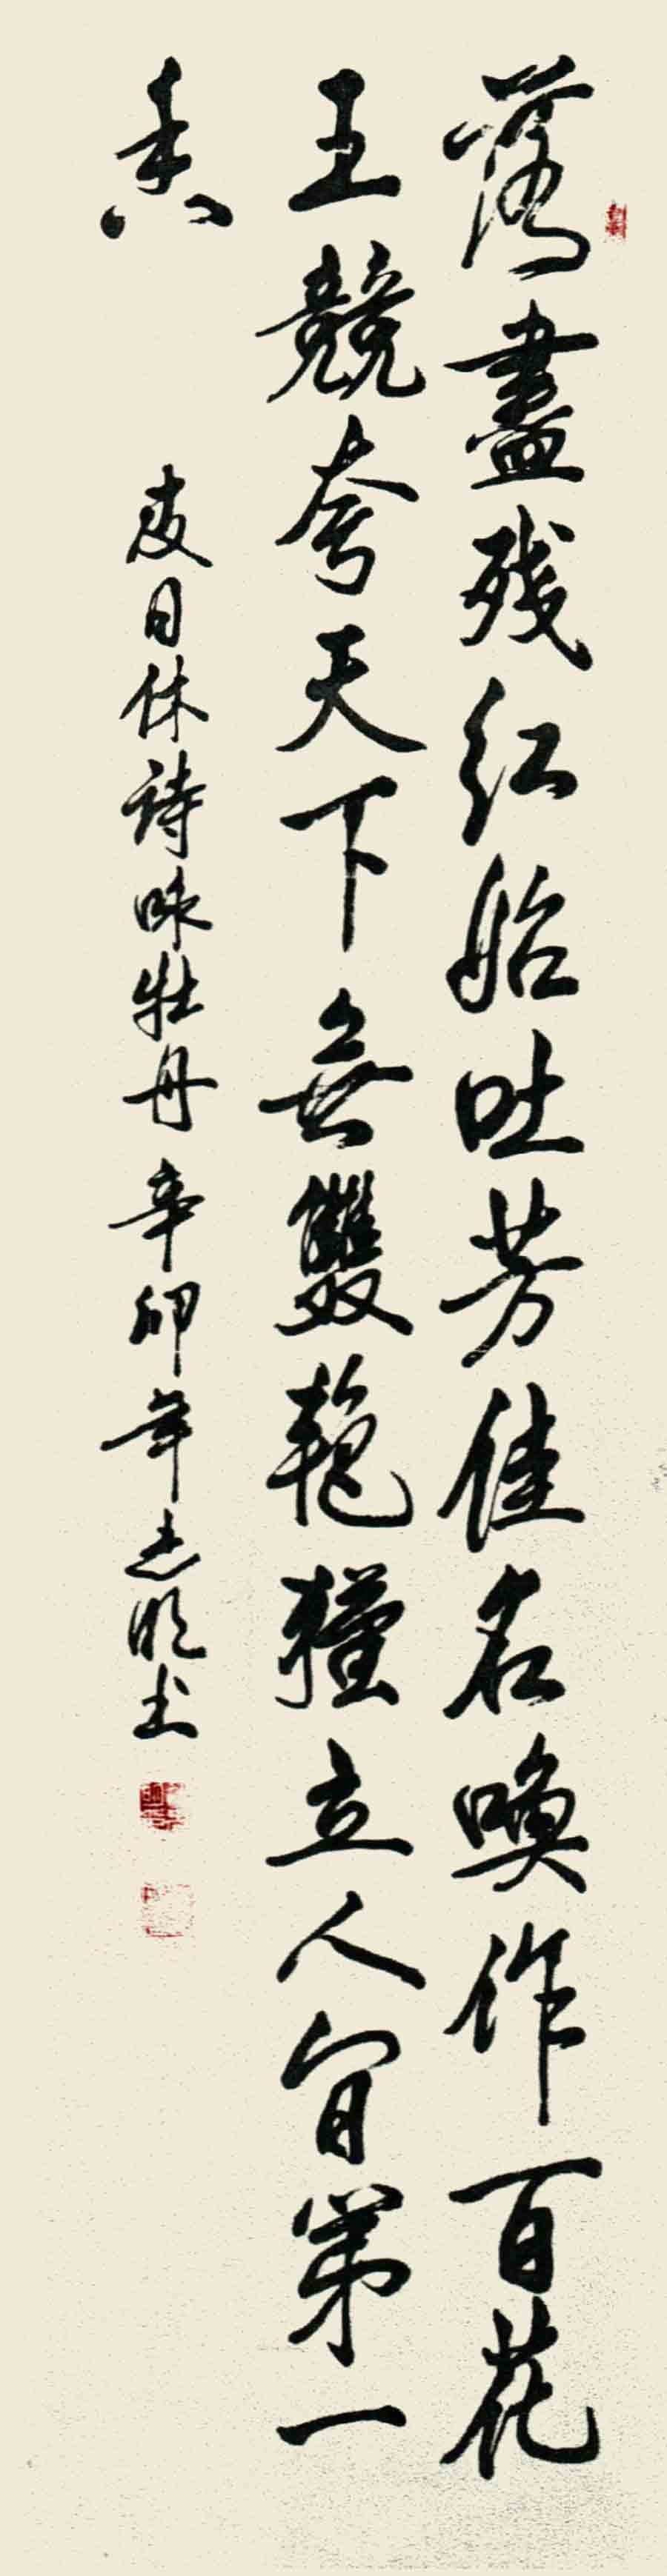 落盡残红始吐芳佳名喚作百花
王競夸天下無雙艳獨立人间第一
香
皮日休詩咏牡丹辛卯年志明书